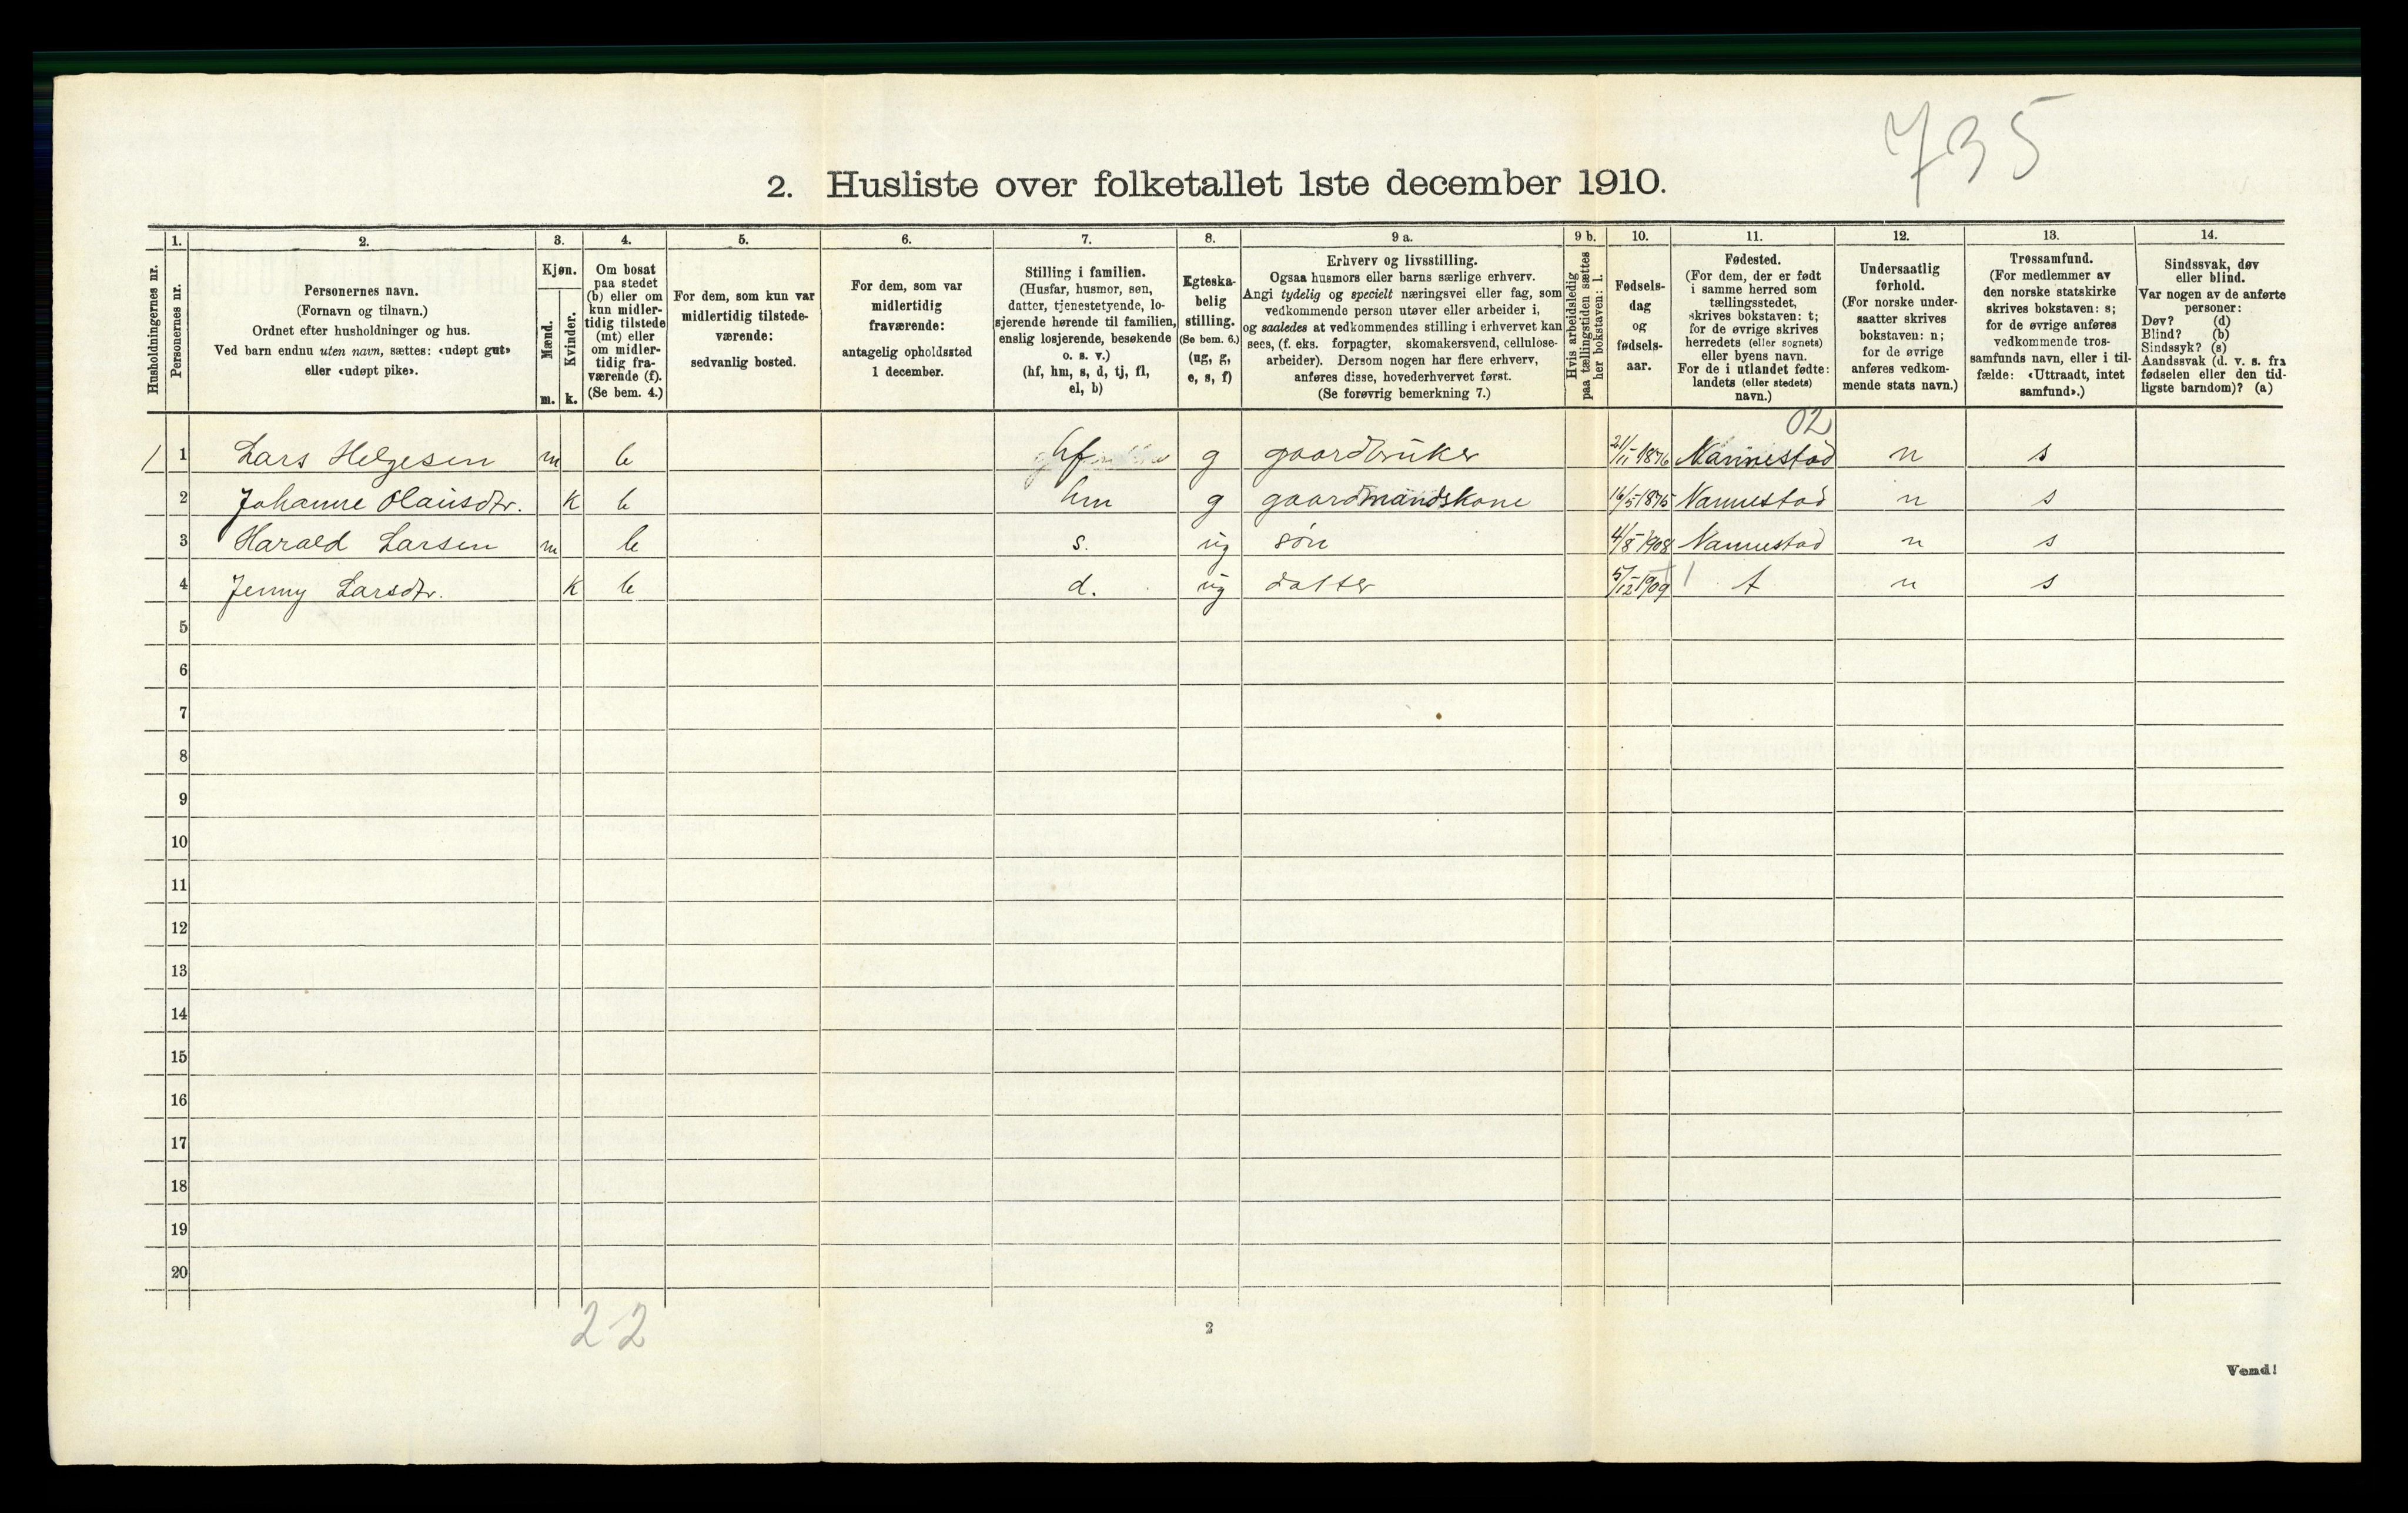 735
2. Husliste over folketallet 1ste december 1910.
1. 2. 3. 4. 5. 6. 7. 8. 9 a. 9 b. 10. 11. 12. 13. 14.
Husholdningernes nr.
Personernes nr.
Personernes navn.
(Fornavn og tilnavn.)
Ordnet efter husholdninger og hus.
Ved barn endnu uten navn, sættes: «udøpt gut»
eller «udøpt pike».
Kjøn.
Mænd.
m.
Kvinder.
k.
Om bosat
paa stedet
(b) eller om
kun midler-
tidig tilstede
(mt) eller
om midler-
tidig fra-
værende (f).
(Se bem. 4.)
For dem, som kun var
midlertidig tilstede-
værende:
sedvanlig bosted.
For dem, som var
midlertidig
fraværende:
antagelig opholdssted
1 december.
Stilling i familien.
(Husfar, husmor, søn,
datter, tjenestetyende, lo-
sjerende hørende til familien,
enslig losjerende, besøkende
o. s. v.)
(hf, hm, s, d, tj, fl,
el, b)
Egteska-
belig
stilling.
(Se bem. 6.)
(ug, g,
e, s, f)
Erhverv og livsstilling.
Ogsaa husmors eller barns særlige erhverv.
Angi tydelig og specielt næringsvei eller fag, som
vedkommende person utøver eller arbeider i,
og saaledes at vedkommendes stilling i erhvervet kan
sees, (f. eks. forpagter, skomakersvend, cellulose-
arbeider). Dersom nogen har flere erhverv,
anføres disse, hovederhvervet først.
(Se forøvrig bemerkning 7.)
Hvis arbeidsledig
paa tællingstiden sættes
her bokstaven: l.
Fødsels-
dag
og
fødsels-
aar.
Fødested.
(For dem, der er født
i samme herred som
tællingsstedet,
skrives bokstaven: t;
for de øvrige skrives
herredets (eller sognets)
eller byens navn.
For de i utlandet fødte:
landets (eller stedets)
navn.)
Undersaatlig
forhold.
(For norske under-
saatter skrives
bokstaven: n;
for de øvrige
anføres vedkom-
mende stats navn.)
Trossamfund.
(For medlemmer av
den norske statskirke
skrives bokstaven: s;
for de øvrige anføres
vedkommende tros-
samfunds navn, eller i til-
fælde: «Uttraadt, intet
samfund».)
Sindssvak, døv
eller blind.
Var nogen av de anførte
personer:
Døv? (d)
Blind? (b)
Sindssyk? (s)
Aandssvak (d. v. s. fra
fødselen eller den tid-
ligste barndom)? (a)
02
1 1 Lars Helgesen m b hf g gaardbruker 21/11 1876 Nannestad n s
2 Johanne Olausdtr. k b hm g gaardmandskone 16/5 1875 Nannestad n s
3 Harald Larsen m b s. ug søn 4/8 1908 Nannestad n s
4 Jenny Larsdtr. k b d. ug datter 5/12 1909 t n s
5
6
7
8
9
10
11
12
13
14
15
16
17
18
19
20
22
2
Vend!